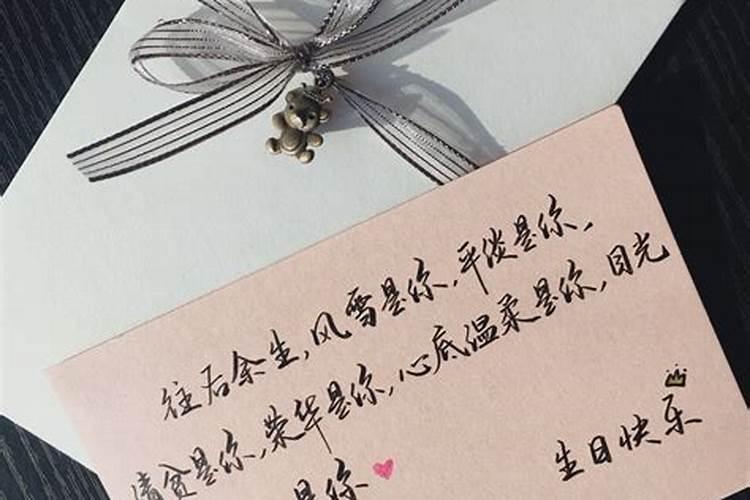 往后余生，风雪是你，平淡是你，
清贫是你，荣华是你，心底温柔是你，目光
是你
生日快乐